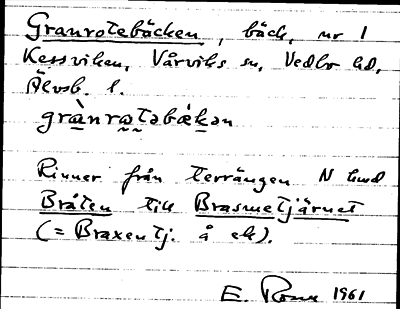 Granrotebäcken, bäck, nr 1
Kessviken, Vårviks sn, Vedbo hd,
Älvsb. l.
grànrotəbǽkən
Rinner från terrängen N
Bråten till Brasmetjärnet
(= Braxentj. å ek).
E. 1961